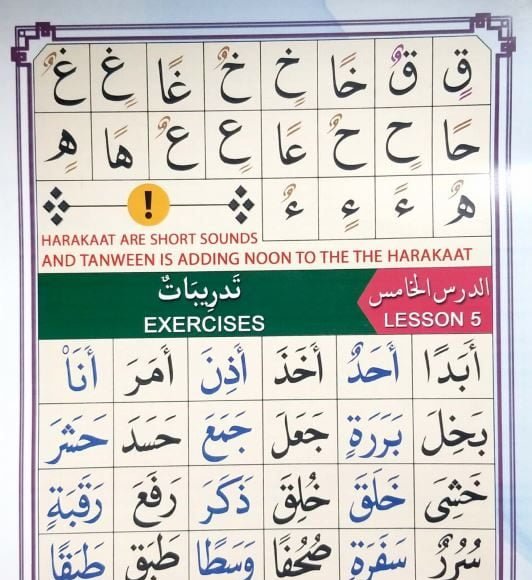 قٍ قٌ خًا خٍ خٌ غًا غٍ غٌ
حًا حٍ حٌ عًا عٍ عٌ هًا هٍ
هٌ ءً ءٍ ءٌ !
HARAKAAT ARE SHORT SOUNDS
AND TANWEEN IS ADDING NOON TO THE THE HARAKAAT
الدرس الخامس
LESSON 5
تَدرِيبَاتٌ
EXERCISES
أَبَدًا أَحَدٌ أَخَذَ أَذِنَ أَمَرَ أَنَاْ
بَخِلَ بَرَرَةٍ جَعَلَ جَمَعَ حَسَدَ حَشَرَ
خَشِىَ خَلَقَ خُلِقَ ذَكَرَ رَفَعَ رَقَبَةٍ
سُرُرٌ سَفَرَةٍ صُحُفًا وَسَطًا طَبَقٍ طَبَقًا